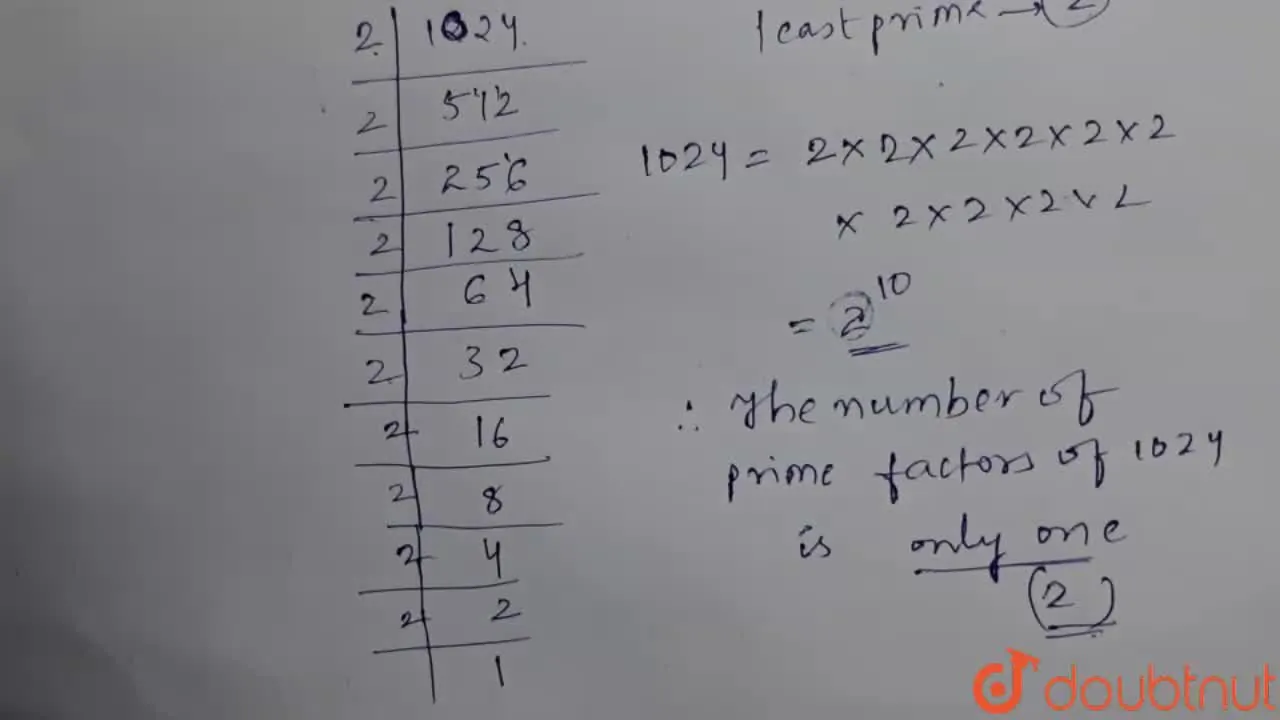 2 | 1024.
2 | 512
2 | 256
2 | 128
2 | 64
2 | 32
2 | 16
2 | 8
2 | 4
2 | 2
1
least prime → 2
1024 = 2 × 2 × 2 × 2 × 2 × 2
× 2 × 2 × 2 × 2
= 2¹⁰
∴ The number of
prime factors of 1024
is only one
(2)
doubtnut